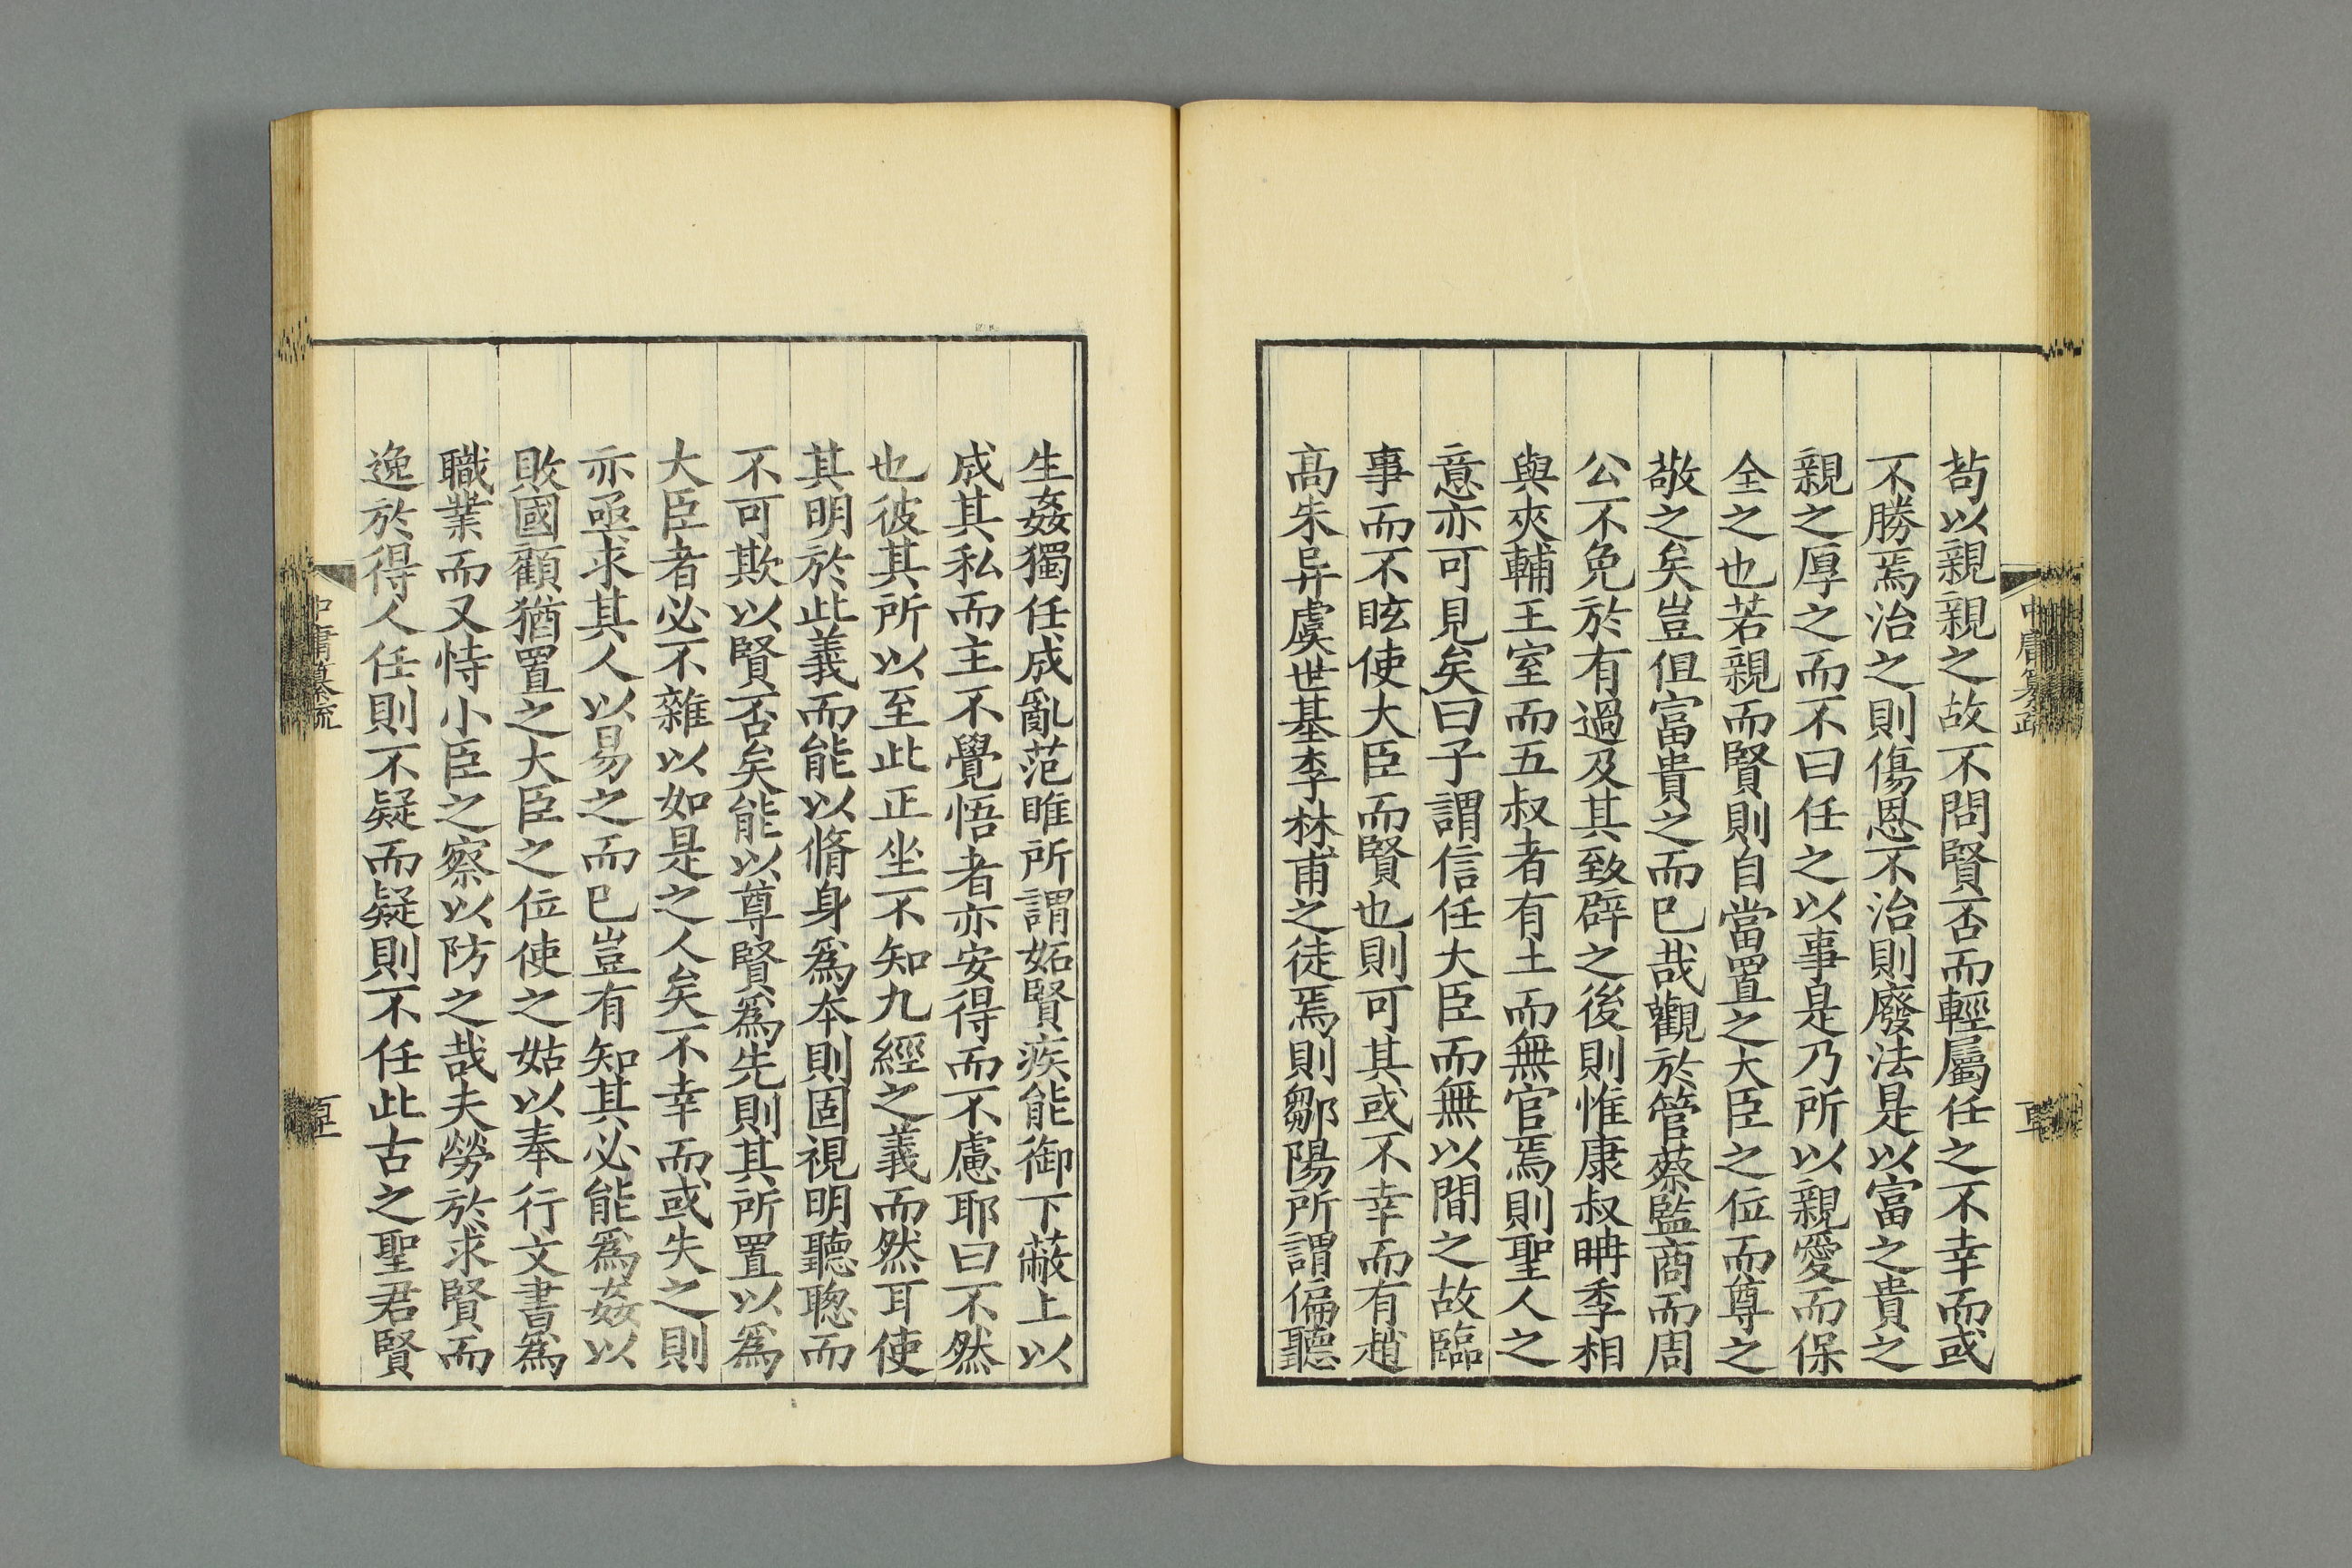 苟以親親之故不問賢否而輕屬任之不幸而或
不勝焉治之則傷恩不治則廢法是以富之貴之
親之厚之而不曰任之以事是乃所以親愛而保
全之也若親而賢則自當置之大臣之位而尊之
敬之矣豈但富貴之而已哉觀於管蔡監商而周
公不免於有過及其致辟之後則惟康叔聃季相
與夾輔王室而五叔者有土而無官焉則聖人之
意亦可見矣曰子謂信任大臣而無以間之故臨
事而不眩使大臣而賢也則可其或不幸而有趙
高朱异虞世基李林甫之徒焉則鄒陽所謂偏聽
生姦獨任成亂范雎所謂妬賢疾能御下蔽上以
成其私而主不覺悟者亦安得而不慮耶曰不然
也彼其所以至此正坐不知九經之義而然耳使
其明於此義而能以脩身爲本則固視明聽聦而
不可欺以賢否矣能以尊賢爲先則其所置以爲
大臣者必不雜以如是之人矣不幸而或失之則
亦亟求其人以易之而已豈有知其必能爲姦以
敗國顧猶置之大臣之位使之姑以奉行文書爲
職業而又恃小臣之察以防之哉夫勞於求賢而
逸於得人任則不疑而疑則不任此古之聖君賢
中庸纂疏